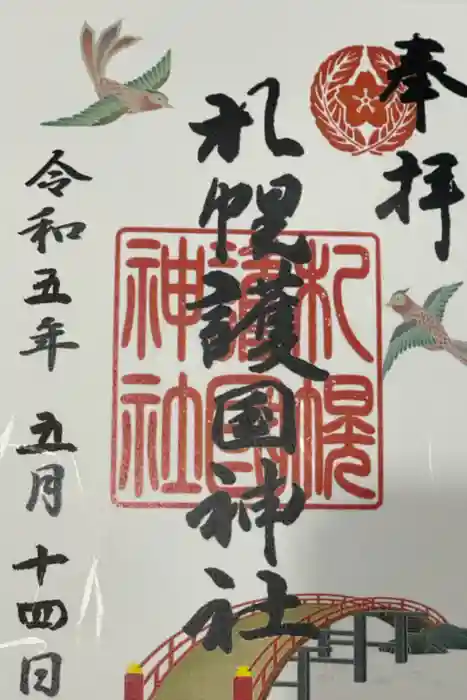 奉拝
札幌護國神社
札幌護國神社
令和五年 五月 十四日